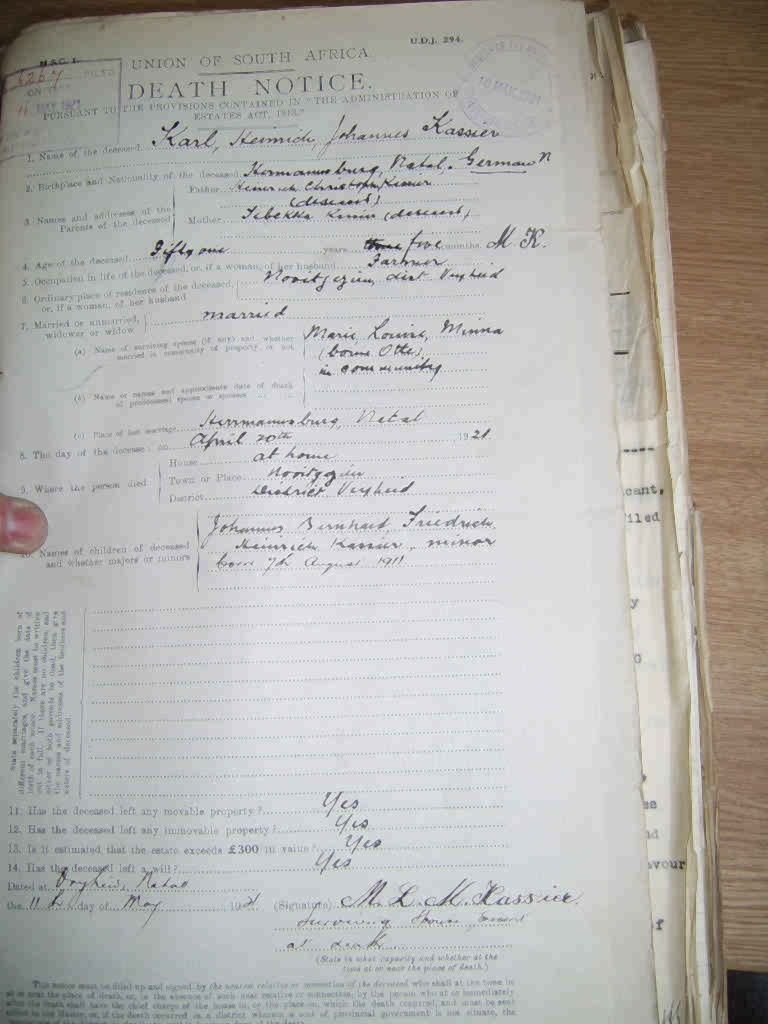 U.D.J. 294.
M.S.C. 1.
UNION OF SOUTH AFRICA.
6267
FILED
ON
MAY 1921
DEATH NOTICE.
PURSUANT TO THE PROVISIONS CONTAINED IN "THE ADMINISTRATION OF
ESTATES ACT, 1913."
1. Name of the deceased Karl, Heinrich, Johannes Kassier
2. Birthplace and Nationality of the deceased Hermannsburg, Natal, German
3. Names and addresses of the Parents of the deceased
Father Heinrich Christoph
(deceased)
Mother (deceased)
4. Age of the deceased Fifty one years five months M. K.
5. Occupation in life of the deceased, or, if a woman, of her husband Farmer
6. Ordinary place of residence of the deceased, or, if a woman, of her husband Nooitgezien, dist. Vryheid
7. Married or unmarried, widower or widow married
(a) Name of surviving spouse (if any) and whether married in community of property or not
Marie, Louise, Minna
(borne Otte)
in community
(b) Name or names and approximate date of death of predeceased spouse or spouses
(c) Place of last marriage Herrmannsburg, Natal
8. The day of the decease: on April 20th 1921.
9. Where the person died
House at home
Town or Place Nooitgezien
District District Vryheid
10. Names of children of deceased and whether majors or minors
Johannes Bernhard Friedrich
Heinrich Kassier, minor
born 7th August 1911
State separately the children born of
different marriages, and give the date of
birth of each minor. Names must be written
out in full. If there are no children, and
either or both parents be dead, then give
the names and addresses of the brothers and
sisters of deceased.
11. Has the deceased left any movable property? Yes
12. Has the deceased left any immovable property? Yes
13. Is it estimated that the estate exceeds £300 in value? Yes
14. Has the deceased left a will? Yes
Dated at Vryheid, Natal
the 11th day of May 1921 (Signature) M. L. M. Kassier.
Surviving Spouse present
at death
(State in what capacity and whether at the
time at or near the place of death.)
This notice must be filled up and signed by the nearest relative or connection of the deceased who shall at the time be
at or near the place of death, or, in the absence of such near relative or connection, by the person who at or immediately
after the death shall have the chief charge of the house in, or the place on, which the death occurred, and must be sent